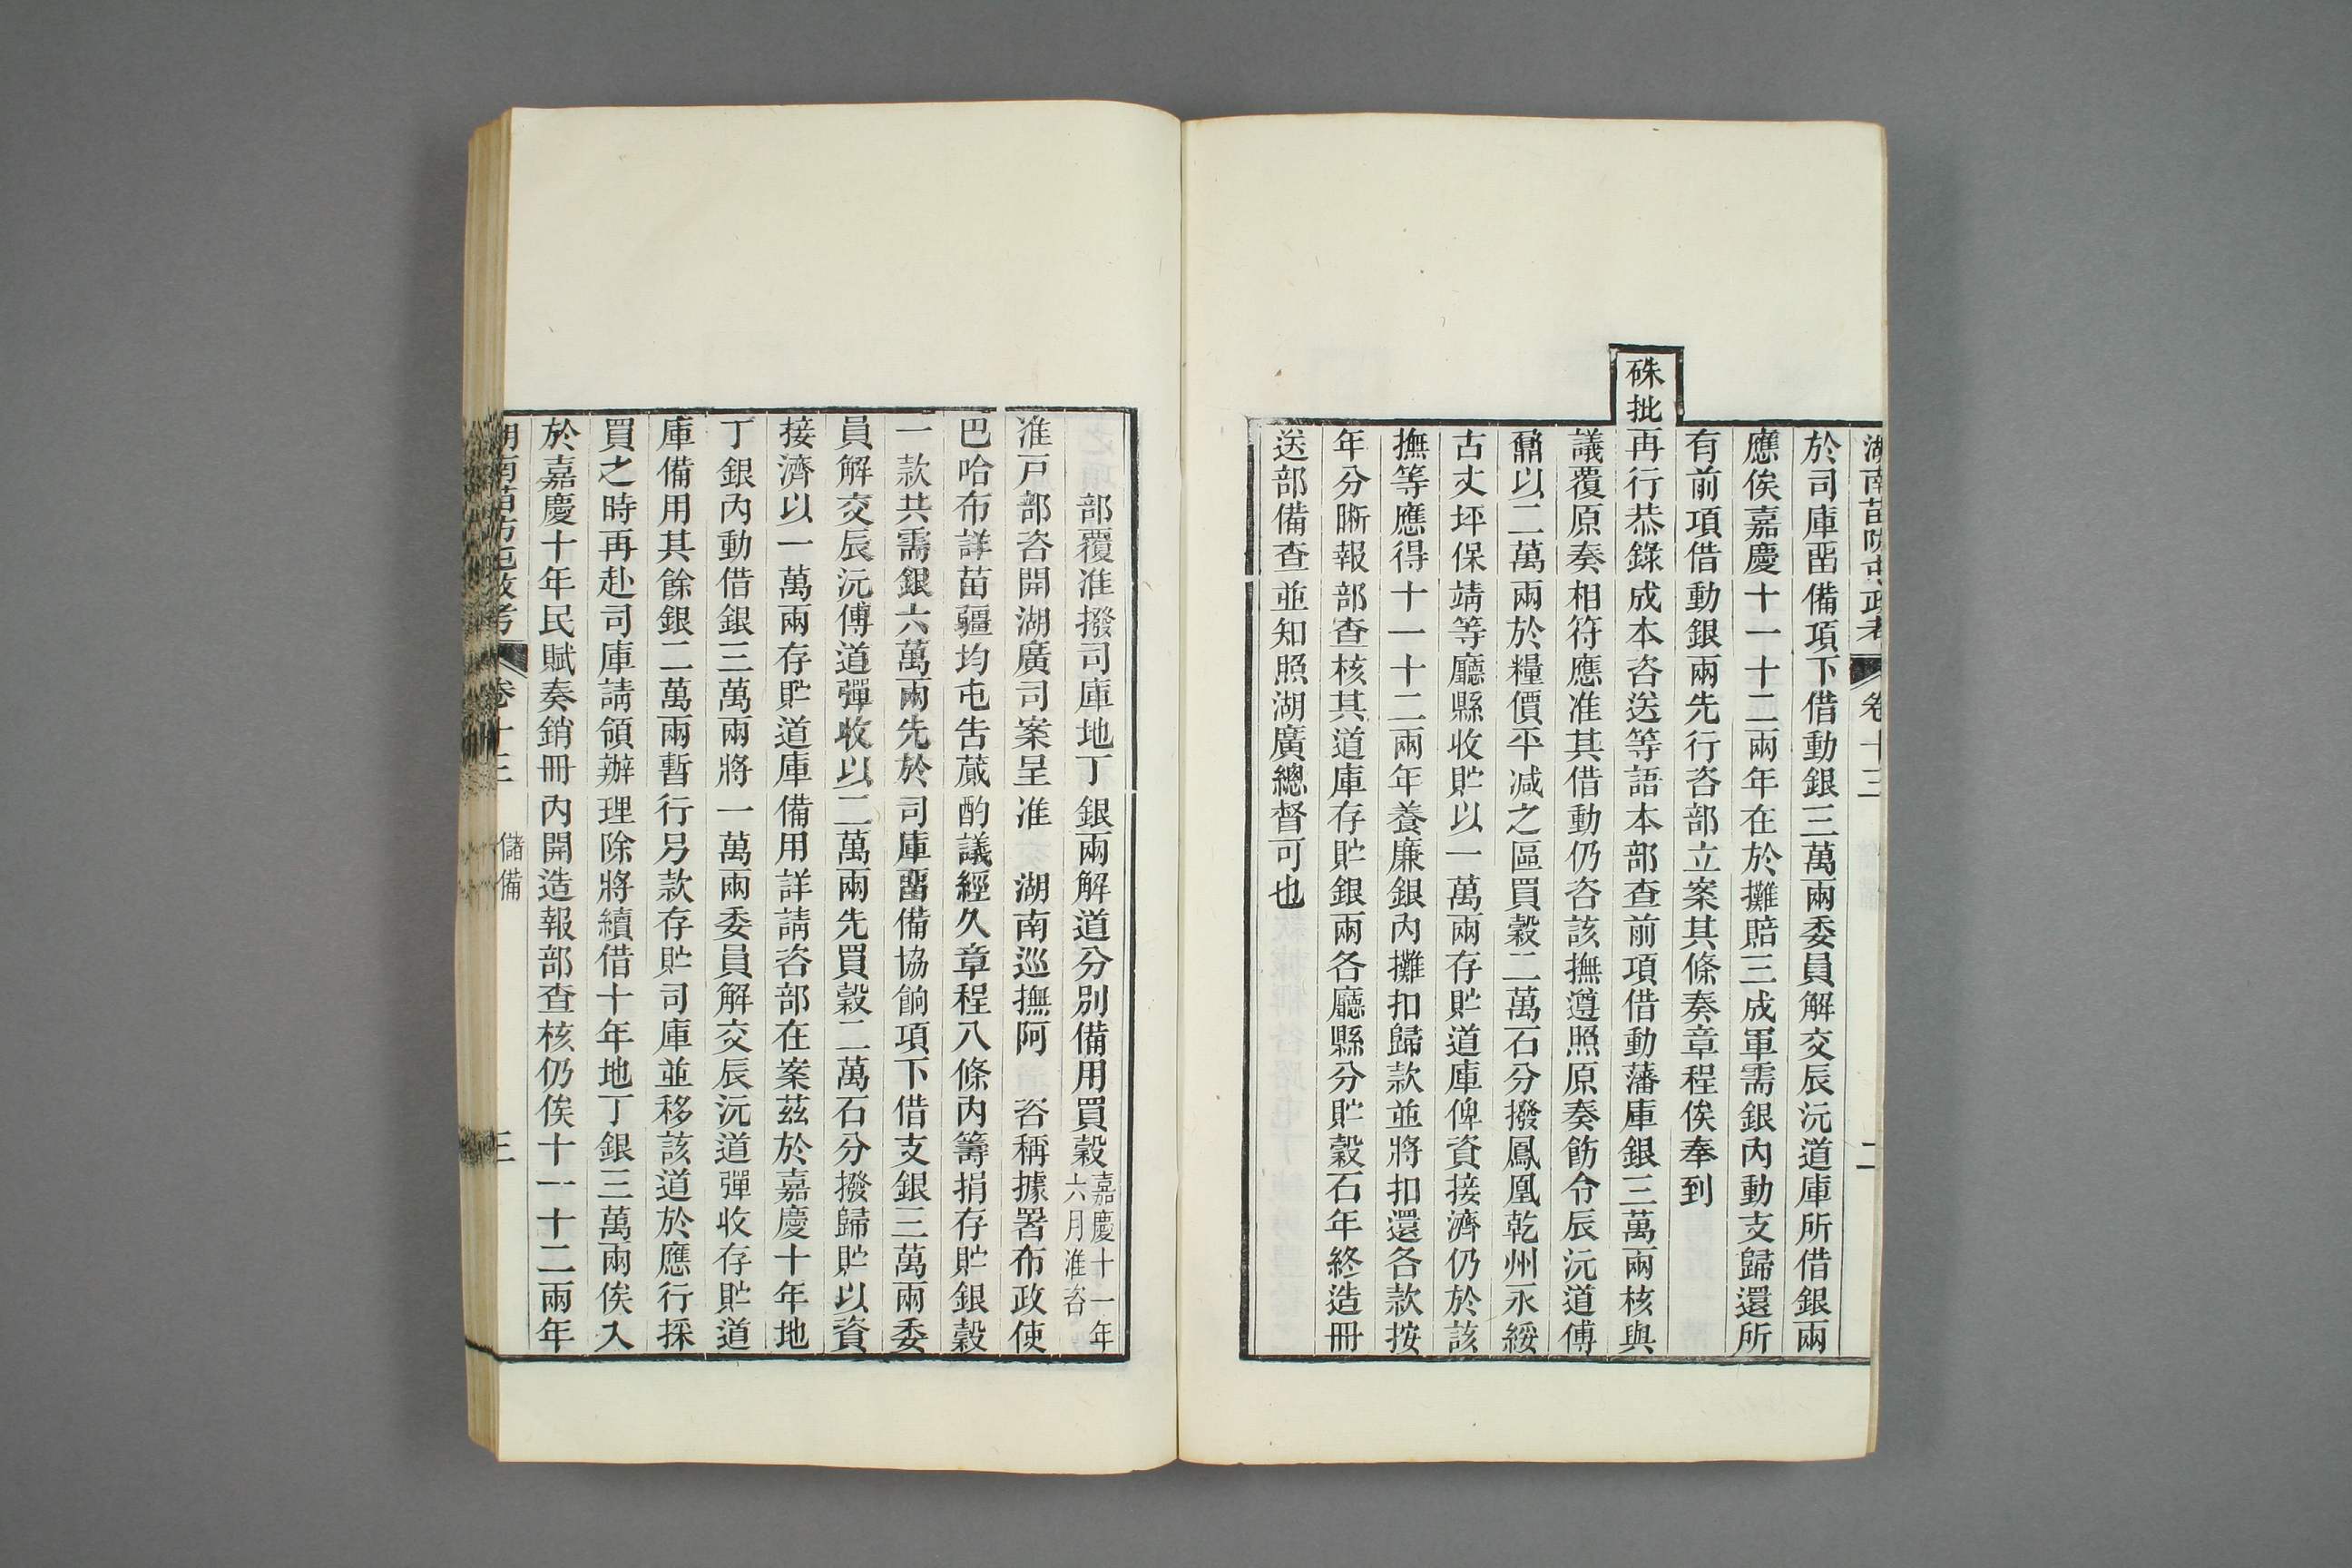 湖南苗防屯政考 卷十三 二
於司庫畱備項下借動銀三萬兩委員解交辰沅道庫所借銀兩
應俟嘉慶十一十二兩年在於攤賠三成軍需銀內動支歸還所
有前項借動銀兩先行咨部立案其條奏章程俟奉到
硃批再行恭錄成本咨送等語本部查前項借動藩庫銀三萬兩核與
議覆原奏相符應准其借動仍咨該撫遵照原奏飭令辰沅道傅
鼐以二萬兩於糧價平減之區買穀二萬石分撥鳳凰乾州永綏
古丈坪保靖等廳縣收貯以一萬兩存貯道庫俾資接濟仍於該
撫等應得十一十二兩年養廉銀內攤扣歸款並將扣還各款按
年分晰報部查核其道庫存貯銀兩各廳縣分貯穀石年終造冊
送部備查並知照湖廣總督可也
部覆准撥司庫地丁銀兩解道分別備用買穀嘉慶十一年
六月准咨
准戶部咨開湖廣司案呈准湖南巡撫阿咨稱據署布政使
巴哈布詳苗疆均屯告蕆酌議經久章程八條內籌捐存貯銀穀
一款共需銀六萬兩先於司庫畱備協餉項下借支銀三萬兩委
員解交辰沅傅道彈收以二萬兩先買穀二萬石分撥歸貯以資
接濟以一萬兩存貯道庫備用詳請咨部在案茲於嘉慶十年地
丁銀內動借銀三萬兩將一萬兩委員解交辰沅道彈收存貯道
庫備用其餘銀二萬兩暫行另款存貯司庫並移該道於應行採
買之時再赴司庫請領辦理除將續借十年地丁銀三萬兩俟入
於嘉慶十年民賦奏銷冊內開造報部查核仍俟十一十二兩年
湖南苗防屯政考 卷十三 儲備 三